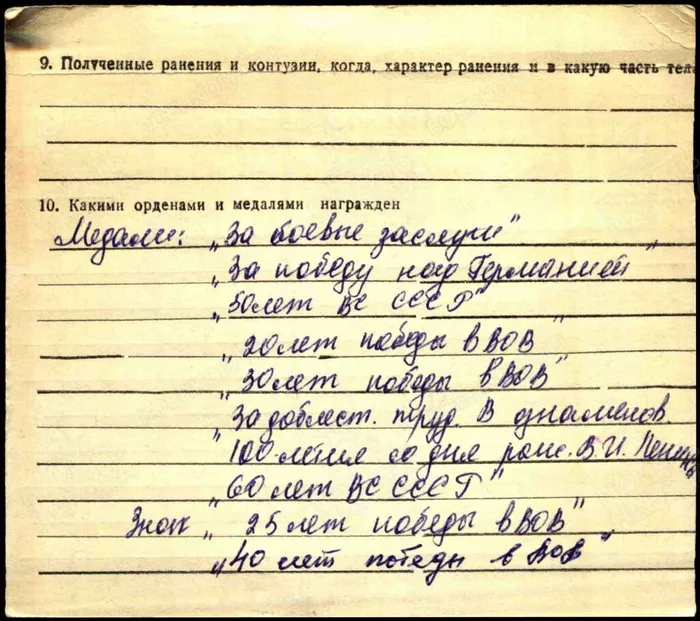 9. Полученные ранения и контузии, когда, характер ранения и в какую часть тела
10. Какими орденами и медалями награжден
Медали: „За боевые заслуги"
„За победу над Германией"
„50 лет ВС СССР"
„20 лет победы в ВОВ"
„30 лет победы в ВОВ"
„За доблест. труд. В ознаменов.
100-летия со дня рож. В.И. Ленина
„60 лет ВС СССР"
Знак „25 лет победы в ВОВ"
„40 лет победы в ВОВ"